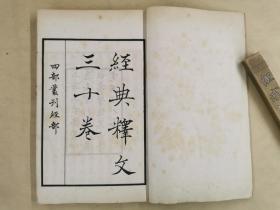 經典釋文
三十卷
四部叢刊經部